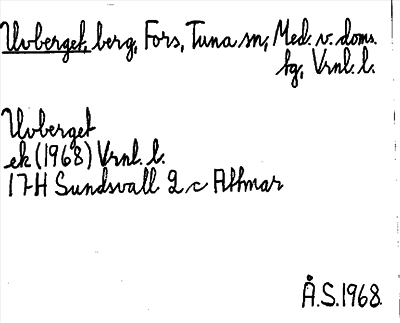 Uvberget, berg, Fors, Tuna sn, Med. v. doms.
tg, Vrnl. l.
Uvberget
ek (1968) Vrnl. l.
17H Sundsvall 2 c Allmar
Å.S. 1968.